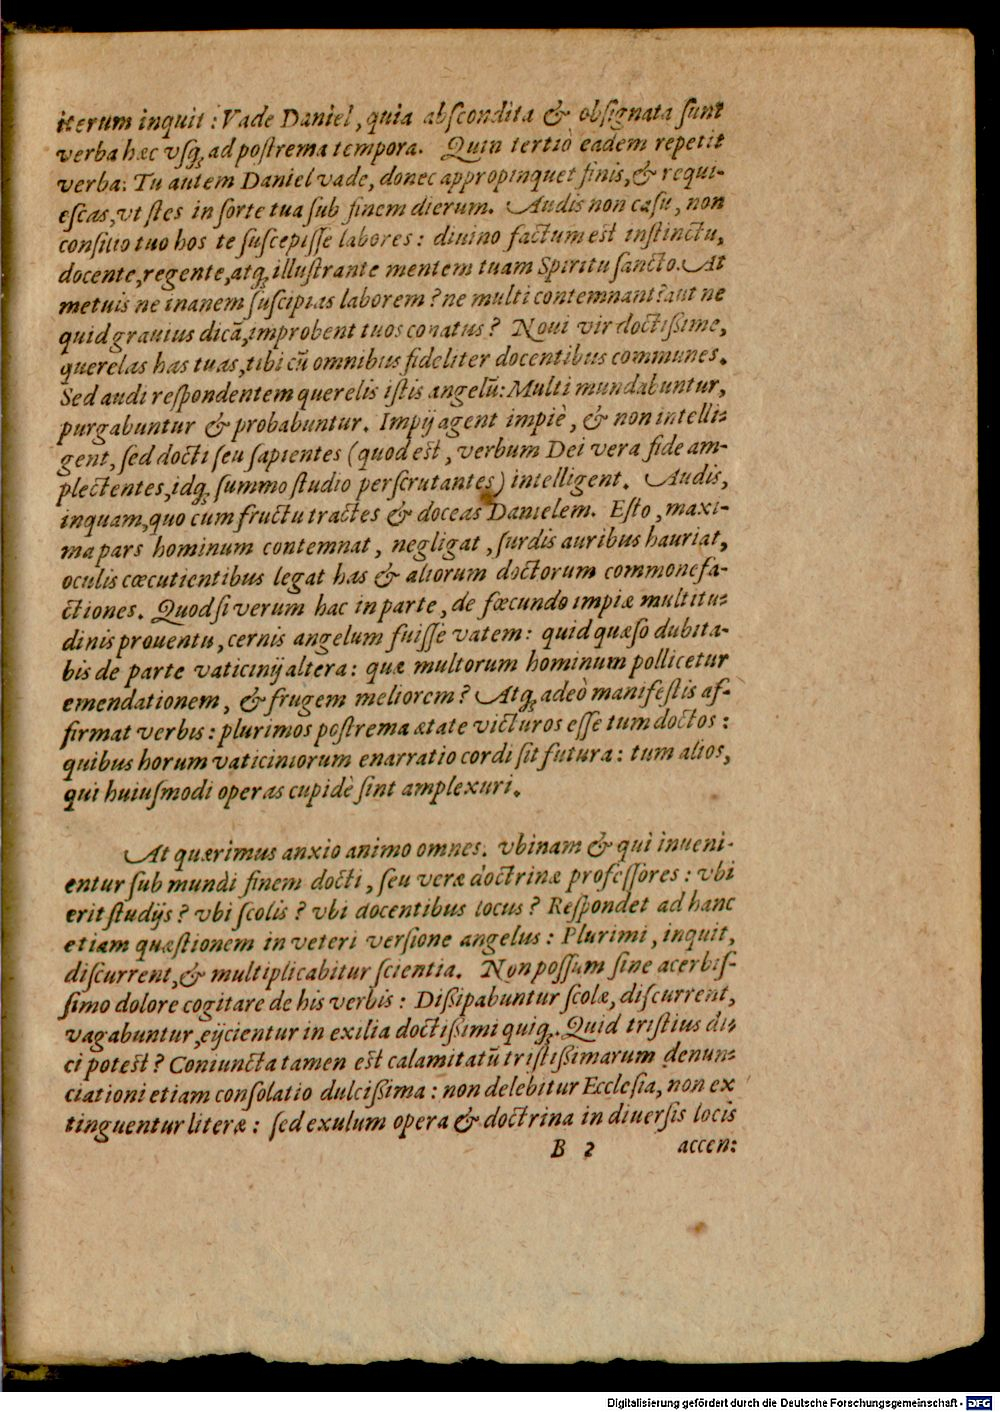 iterum inquit : Vade Daniel, quia abſcondita & obſignata ſunt
verba hæc vſq; ad poſtrema tempora. Quin tertiò eadem repetit
verba: Tu autem Daniel vade, donec appropinquet finis, & requi-
eſcas, vt ſtes in ſorte tua ſub finem dierum. Audis non caſu, non
conſilio tuo hos te ſuſcepiſſe labores : diuino factum est inſtinctu,
docente, regente, atq; illuſtrante mentem tuam Spiritu ſancto. At
metuis ne inanem ſuſcipias laborem ? ne multi contemnant? aut ne
quid grauius dicã, improbent tuos conatus ? Noui vir doctiſſime,
querelas has tuas, tibi cũ omnibus fideliter docentibus communes.
Sed audi reſpondentem querelis iſtis angelũ: Multi mundabuntur,
purgabuntur & probabuntur. Impij agent impiè, & non intelli=
gent, ſed docti ſeu ſapientes (quod est, verbum Dei vera fide am-
plectentes, idq; ſummo ſtudio perſcrutantes) intelligent. Audis,
inquam, quo cum fructu tractes & doceas Danielem. Eſto, maxi-
ma pars hominum contemnat, negligat, ſurdis auribus hauriat,
oculis cœcutientibus legat has & aliorum doctorum commonefa-
ctiones. Quodſi verum hac in parte, de fœcundo impiæ multitu=
dinis prouentu, cernis angelum fuiſſe vatem : quid quæſo dubita-
bis de parte vaticinij altera : quæ multorum hominum pollicetur
emendationem, & frugem meliorem ? Atq; adeò manifeſtis af-
firmat verbis : plurimos poſtrema ætate victuros eſſe tum doctos :
quibus horum vaticiniorum enarratio cordi ſit futura : tum alios,
qui huiuſmodi operas cupidè ſint amplexuri.
At quærimus anxio animo omnes. vbinam & qui inueni-
entur ſub mundi finem docti, ſeu veræ doctrinæ profeſſores : vbi
erit ſtudijs ? vbi ſcolis ? vbi docentibus locus ? Reſpondet ad hanc
etiam quæſtionem in veteri verſione angelus : Plurimi, inquit,
diſcurrent, & multiplicabitur ſcientia. Non poſſum ſine acerbiſ-
ſimo dolore cogitare de his verbis : Diſſipabuntur ſcolæ, diſcurrent,
vagabuntur, eijcientur in exilia doctiſſimi quiq;. Quid triſtius di=
ci potest ? Coniuncta tamen est calamitatũ triſtiſſimarum denun=
ciationi etiam conſolatio dulciſſima : non delebitur Eccleſia, non ex
tinguentur literæ : ſed exulum opera & doctrina in diuerſis locis
B 2 accen=
Digitalisierung gefördert durch die Deutsche Forschungsgemeinschaft - DFG